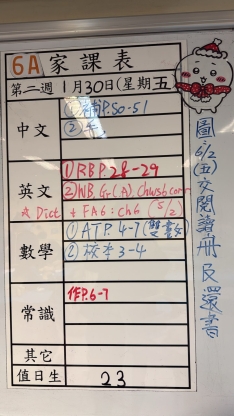 6A 家課表
第二週 1月30日(星期五
中文
①補P.50-51
②
英文
①RBP.28-29
②NB Gr(A)
☆ Dict + FA6: ch6 (5/2)
數學
①ATP.4-7(雙
②校本3-4
常識
作P.6-7
其它
值日生 23
圖:6/2(五)交閱讀冊及還書